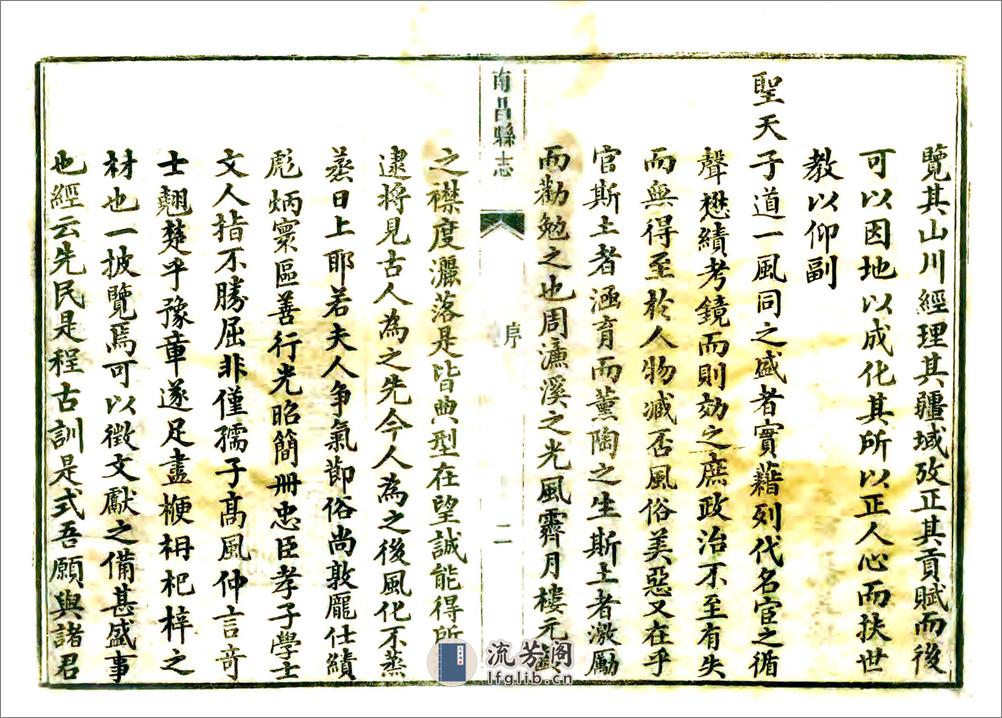 覽其山川經理其疆域攷正其貢賦而後
可以因地以成化其所以正人心而扶世
教以仰副
聖天子道一風同之盛者實藉列代名宦之循
聲懋績考鏡而則効之庶政治不至有失
而無得至於人物臧否風俗美惡又在乎
官斯土者涵育而薰陶之生斯土者激勵
而勸勉之也周濂溪之光風霽月樓元
南昌縣志
序
二
之襟度灑落是皆典型在望誠能得所
逮將見古人為之先今人為之後風化不蒸
蒸日上耶若夫人爭氣節俗尚敦龐仕績
彪炳寰區善行光昭簡冊忠臣孝子學士
文人指不勝屈非僅孺子高風仲言奇
士翹楚乎豫章遂足盡楩枏杞梓之
材也一披覽焉可以徵文獻之備甚盛事
也經云先民是程古訓是式吾願與諸君
流芳阁
lfglib.cn